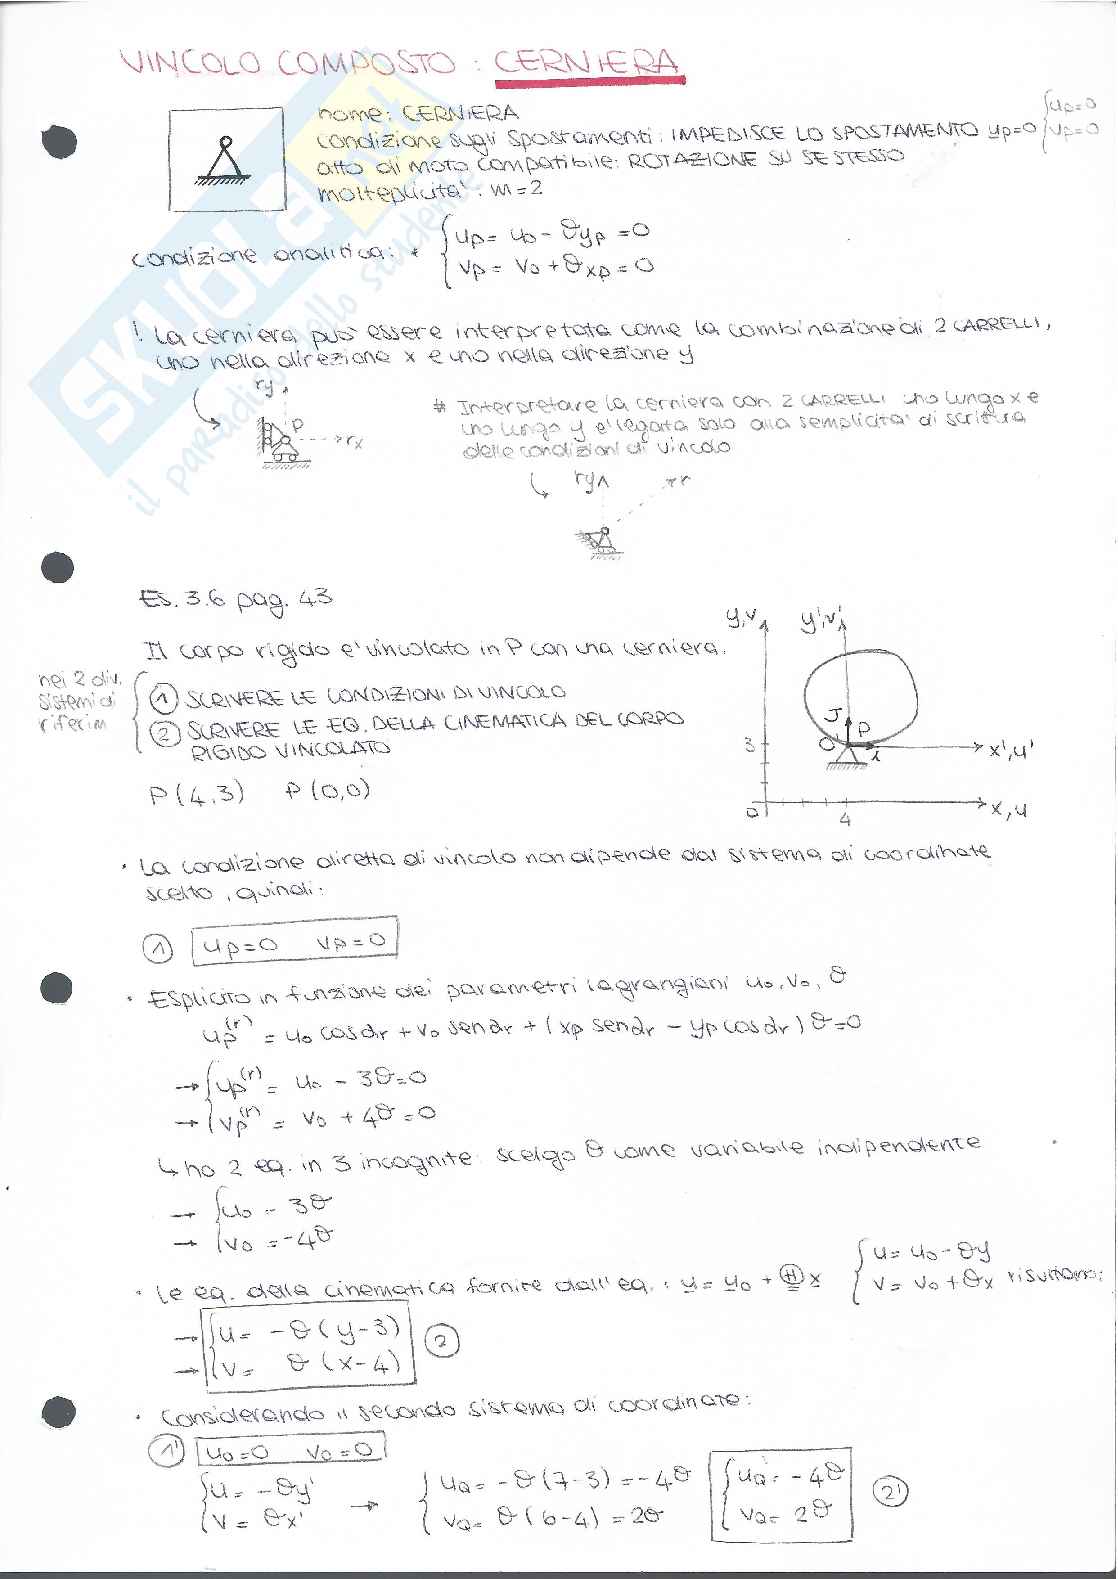 VINCOLO COMPOSTO : CERNIERA
nome: CERNIERA
condizione sugli spostamenti: IMPEDISCE LO SPOSTAMENTO up=0 { up=0 vp=0
atto di moto compatibile: ROTAZIONE SU SE STESSO
molteplicita': m=2
condizione analitica: • { up = uo - θyp = 0
vp = vo + θxp = 0
! La cerniera puo' essere interpretata come la combinazione di 2 CARRELLI,
uno nella direzione x e uno nella direzione y
ry
P
rx
# Interpretare la cerniera con 2 CARRELLI uno lungo x e
uno lungo y e' legata solo alla semplicita' di scrittura
delle condizioni di vincolo
ry
r
Es. 3.6 pag. 43
Il corpo rigido e' vincolato in P con una cerniera.
nei 2 div.
sistemi di
riferim
① SCRIVERE LE CONDIZIONI DI VINCOLO
② SCRIVERE LE EQ. DELLA CINEMATICA DEL CORPO
RIGIDO VINCOLATO
P(4,3) P(0,0)
y,v y',v'
J P
O' i x',u'
3
o 4 x,u
• La condizione diretta di vincolo non dipende dal sistema di coordinate
scelto, quindi:
① up=0 vp=0
• Esplicito in funzione dei parametri lagrangiani uo, vo, θ
up(r) = uo cosαr + vo senαr + (xp senαr - yp cosαr) θ=0
→ { up(r) = uo - 3θ=0
→ vp(r) = vo + 4θ=0
↳ ho 2 eq. in 3 incognite: scelgo θ come variabile indipendente
→ { uo = 3θ
→ vo = -4θ
• Le eq. della cinematica fornite dall'eq.: u = uo + Ⓗ x { u = uo - θy
v = vo + θx risultano:
→ { u = -θ(y-3)
→ v = θ(x-4) ②
• Considerando il secondo sistema di coordinate:
①' uo=0 vo=0
{ u = -θy' → { uQ = -θ(7-3) = -4θ { uQ = -4θ
v = θx' vQ = θ(6-4) = 2θ vQ = 2θ ②'
SKUOLA.net
il paradiso dello studente